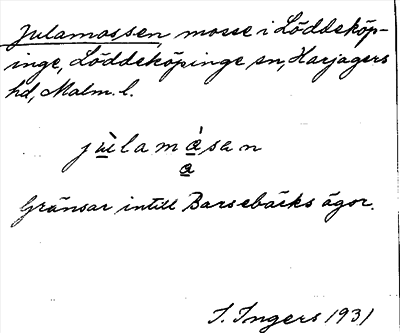 Julamossen, mosse i Löddeköp-
inge, Löddeköpinge sn, Harjagers
hd, Malm. l.
jùlamåsan
a
Gränsar intill Barsebäcks ägor.
I. Ingers 1931